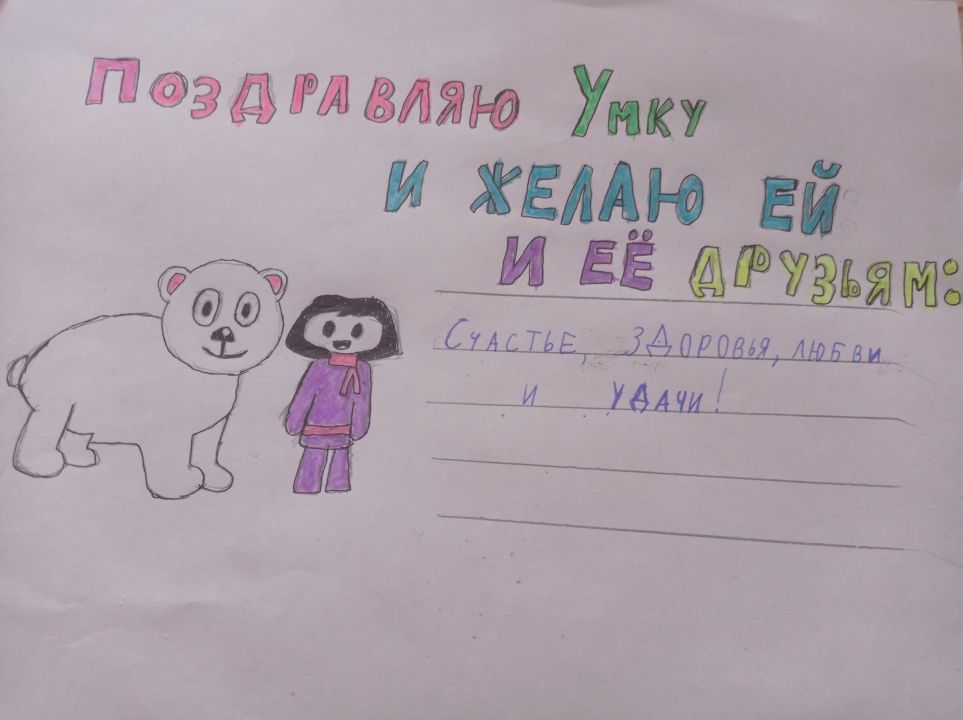 Поздравляю Умку
и желаю ей
и её друзьям:
Счастье, здоровья, любви
и удачи!